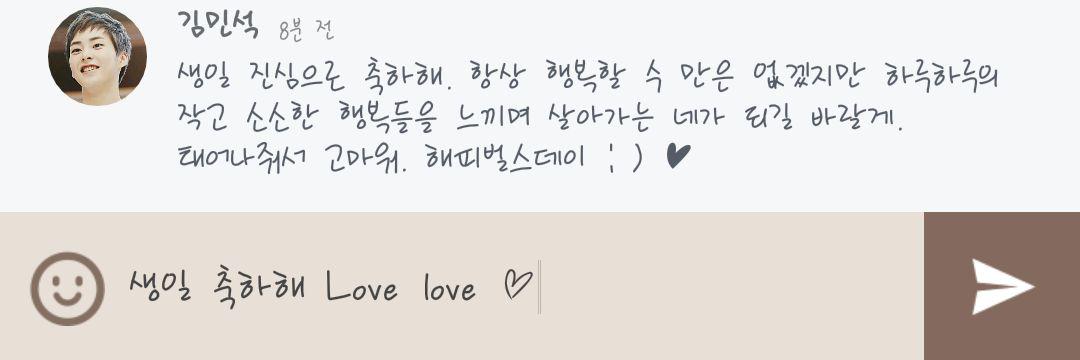 김민석 8분 전
생일 진심으로 축하해. 항상 행복할 수 만은 없겠지만 하루하루의
작고 소소한 행복들을 느끼며 살아가는 네가 되길 바랄게.
태어나줘서 고마워. 해피벌스데이 ; ) ♥
생일 축하해 Love love ♡